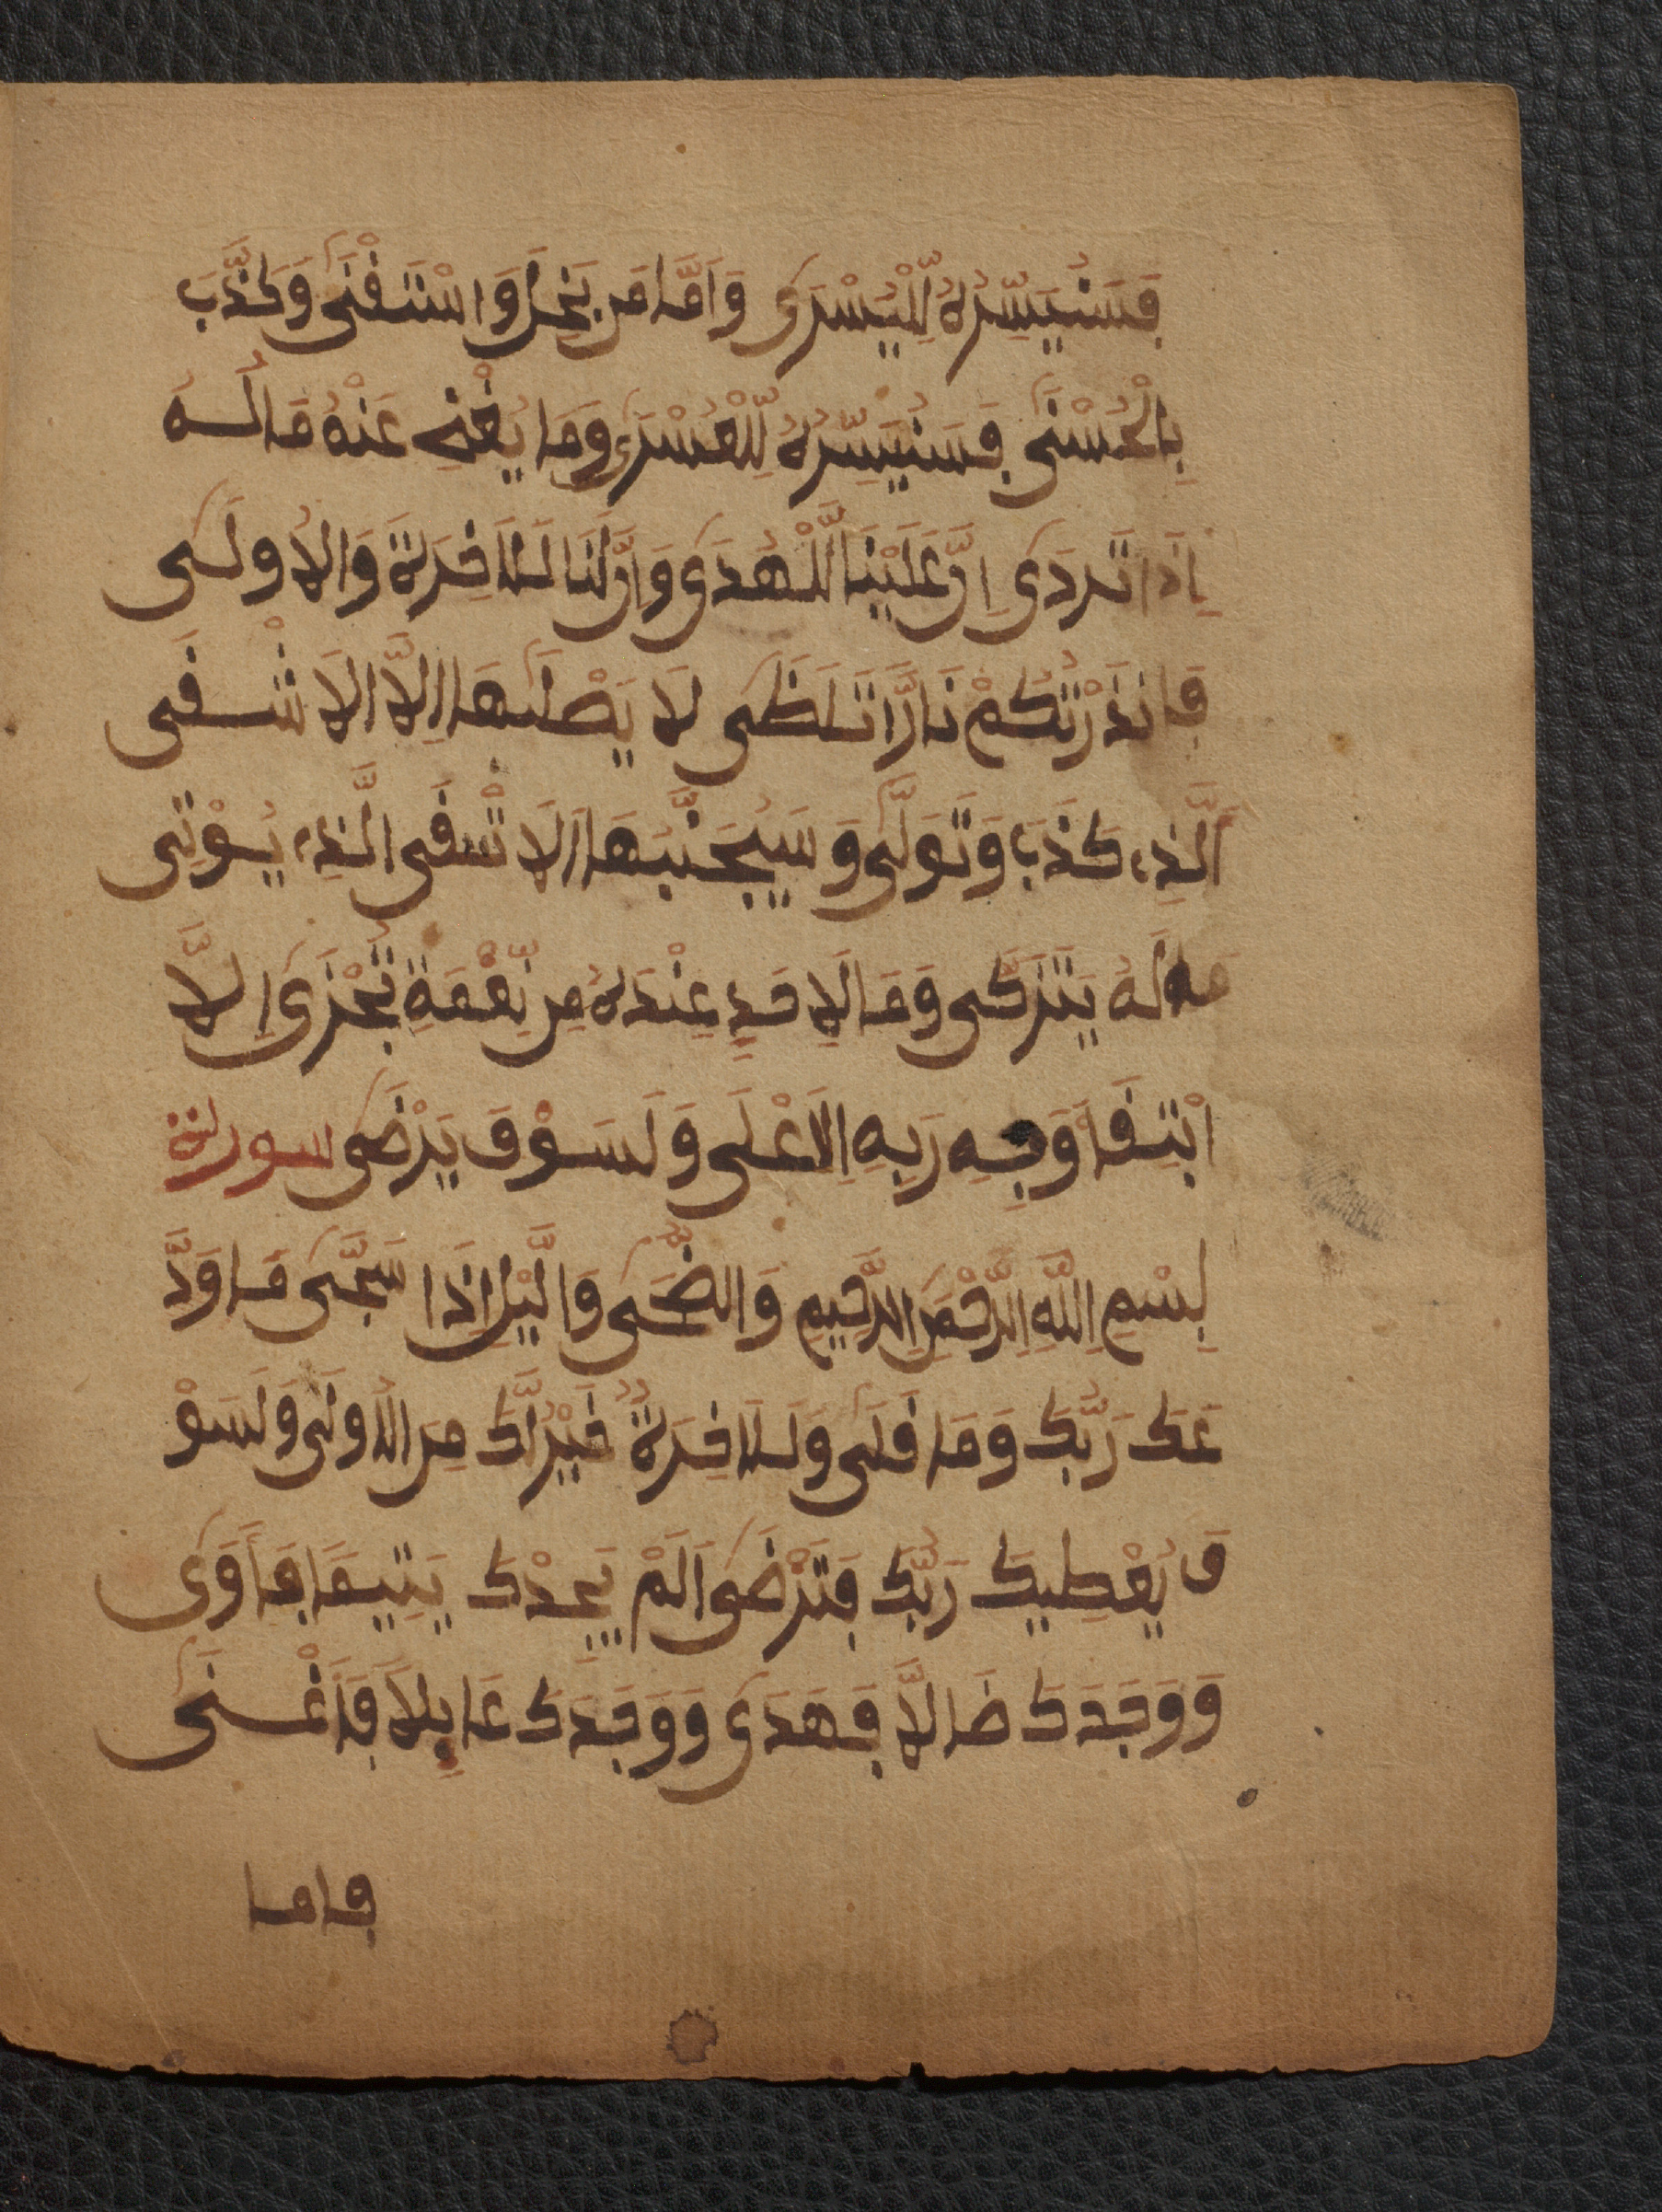 فَسَنُيَسِّرُهُ لِلْيُسْرَى وَأَمَّا مَن بَخِلَ وَاسْتَغْنَى وَكَذَّبَ
بِالْحُسْنَى فَسَنُيَسِّرُهُ لِلْعُسْرَى وَمَا يُغْنِي عَنْهُ مَالُهُ
إِذَا تَرَدَّى إِنَّ عَلَيْنَا لَلْهُدَى وَإِنَّ لَنَا لَلَاخِرَةَ وَالُاولَى
فَانذَرْتُكُمْ نَارًا تَلَظَّى لَا يَصْلَيهَا إِلَّا الَاشْقَى
الَّذِي كَذَّبَ وَتَوَلَّى وَسَيُجَنَّبُهَا الَاتْقَى الَّذِي يُوْتِى
مَالَهُ يَتَزَكَّى وَمَا لِاحَدٍ عِنْدَهُ مِن نِّعْمَةٍ تُجْزَى إِلَّا
ابْتِغَا وَجْهِ رَبِهِ الَاعْلَى وَلَسَوْفَ يَرْضَى سورة
بِسْمِ اللَّهِ الرَّحْمَنِ الرَّحِيمِ وَالضُّحَى وَالَّيْلِ إِذَا سَجَى مَا وَدَّ
عَكَ رَبُّكَ وَمَا قَلَى وَلَلَاخِرَةُ خَيْرٌ لَّكَ مِنَ الُاولَى وَلَسَوْ
فَ يُعْطِيكَ رَبُّكَ فَتَرْضَى أَلَمْ يَجِدْكَ يَتِيمًا فَأَوَى
وَوَجَدَكَ ضَالًّا فَهَدَى وَوَجَدَكَ عَايِلًا فَأَغْنَى
فاما